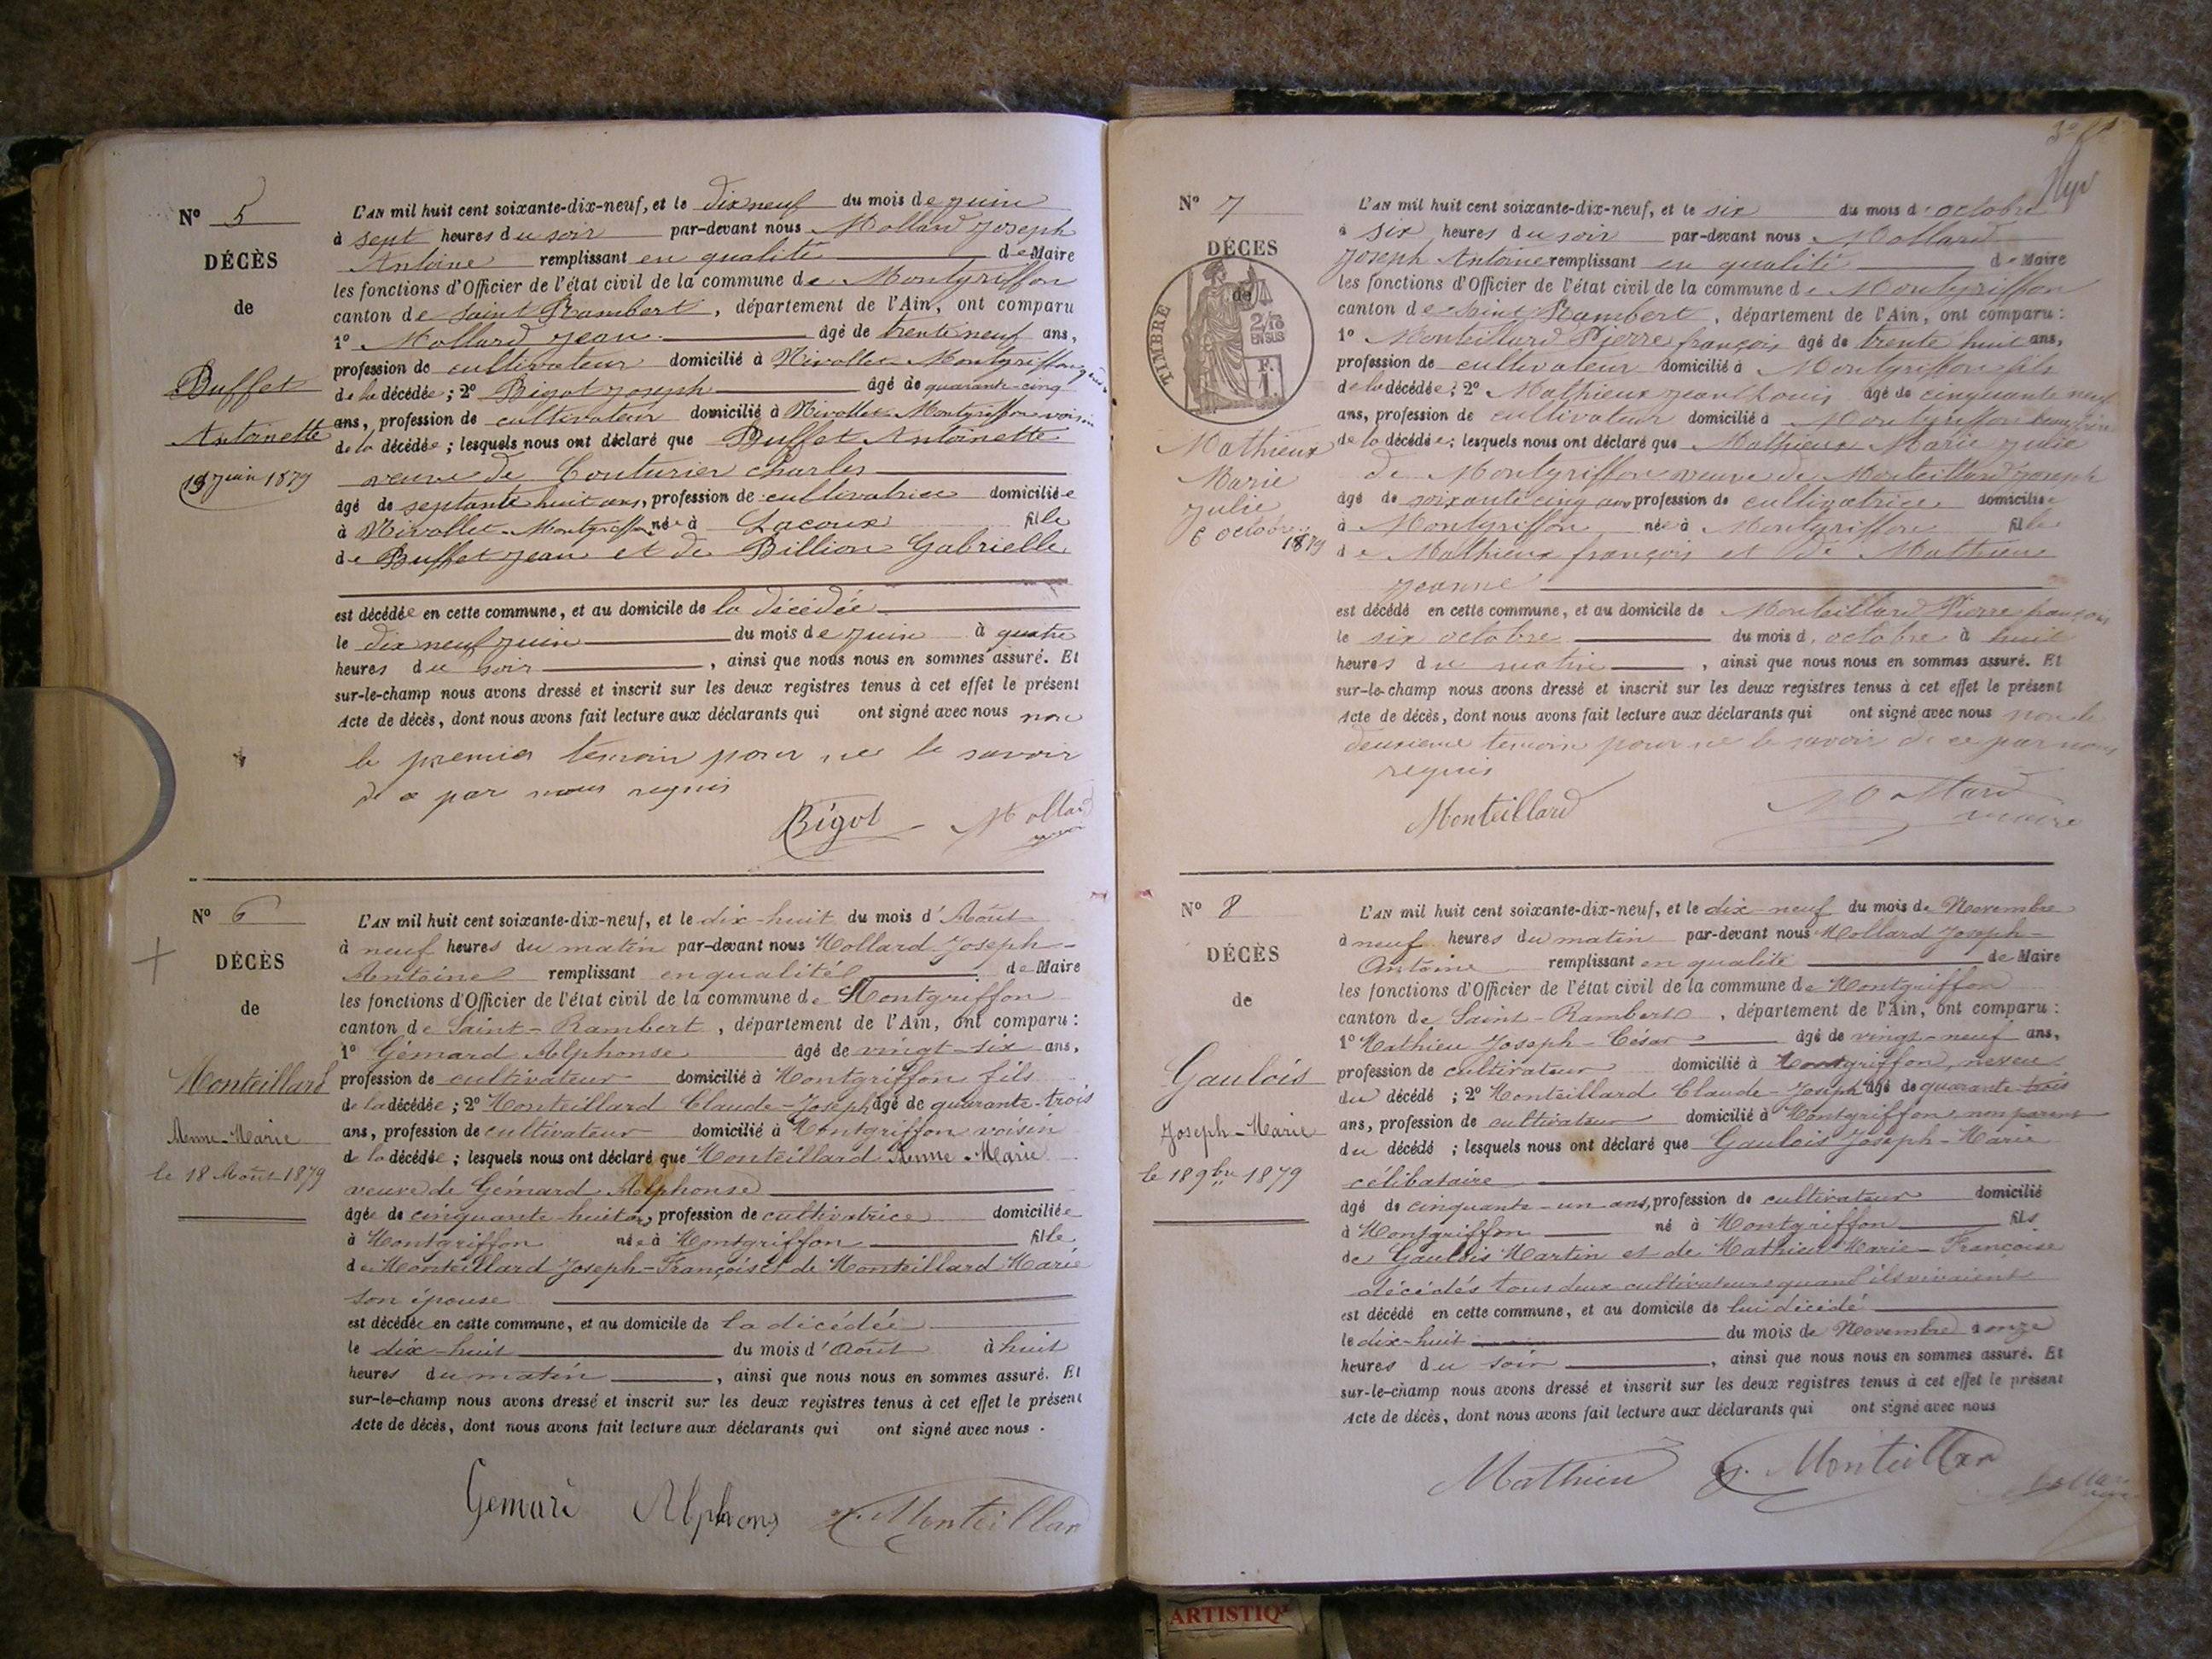 N° 5
DÉCÈS
de
Buffet
Antoinette
19 juin 1879
L'AN mil huit cent soixante-dix-neuf, et le dix neuf du mois de juin
à sept heures du soir par-devant nous Mollard Joseph
Antoine remplissant en qualité de Maire
les fonctions d'Officier de l'état civil de la commune de Montgriffon
canton de Saint Rambert, département de l'Ain, ont comparu
1° Mollard Jean âgé de trente neuf ans,
profession de cultivateur domicilié à Nivollet-Montgriffon
de la décédée; 2° Bigot Joseph âgé de quarante-cinq
ans, profession de cultivateur domicilié à Nivollet-Montgriffon voisin
de la décédée; lesquels nous ont déclaré que Buffet Antoinette
veuve de Couturier Charles
âgé de septante huit ans, profession de cultivatrice domiciliée
à Nivollet-Montgriffon née à Lacoux fille
de Buffet Jean et de Billion Gabrielle
est décédée en cette commune, et au domicile de la décédée
le dix neuf juin du mois de juin à quatre
heures du soir, ainsi que nous nous en sommes assuré. Et
sur-le-champ nous avons dressé et inscrit sur les deux registres tenus à cet effet le présent
Acte de décès, dont nous avons fait lecture aux déclarants qui ont signé avec nous non
le premier temoin pour ne le savoir
de ce par nous requis
Bigot Mollard
N° 6
DÉCÈS
de
Monteillard
Anne-Marie
le 18 Août 1879
L'AN mil huit cent soixante-dix-neuf, et le dix-huit du mois d'Août
à neuf heures du matin par-devant nous Mollard Joseph-
Antoine remplissant en qualité de Maire
les fonctions d'Officier de l'état civil de la commune de Montgriffon
canton de Saint-Rambert, département de l'Ain, ont comparu:
1° Gémard Alphonse âgé de vingt-six ans,
profession de cultivateur domicilié à Montgriffon fils
de la décédée; 2° Monteillard Claude-Joseph âgé de quarante-trois
ans, profession de cultivateur domicilié à Montgriffon voisin
de la décédée; lesquels nous ont déclaré que Monteillard Anne-Marie
veuve de Gémard Alphonse
âgée de cinquante-huit ans, profession de cultivatrice domiciliée
à Montgriffon née à Montgriffon fille
de Monteillard Joseph-François et de Monteillard Marie
son épouse
est décédée en cette commune, et au domicile de la décédée
le dix-huit du mois d'Août à huit
heures du matin, ainsi que nous nous en sommes assuré. Et
sur-le-champ nous avons dressé et inscrit sur les deux registres tenus à cet effet le présent
Acte de décès, dont nous avons fait lecture aux déclarants qui ont signé avec nous.
Gemard Alphons Monteillar
N° 7
DÉCÈS
de
TIMBRE
2/10
EN SUS
Mathieux
Marie
Julie
6 octobre
1879
L'AN mil huit cent soixante-dix-neuf, et le six du mois d'octobre
à six heures du soir par-devant nous Mollard
Joseph Antoine remplissant en qualité de Maire
les fonctions d'Officier de l'état civil de la commune de Montgriffon
canton de Saint Rambert, département de l'Ain, ont comparu:
1° Monteillard Pierre françois âgé de trente huit ans,
profession de cultivateur domicilié à Montgriffon fils
de la décédée; 2° Mathieux Jean Louis âgé de cinquante neuf
ans, profession de cultivateur domicilié à Montgriffon beau frère
de la décédée; lesquels nous ont déclaré que Mathieux Marie Julie
de Montgriffon veuve de Monteillard Joseph
âgé de soixante cinq ans profession de cultivatrice domiciliée
à Montgriffon née à Montgriffon fille
de Mathieux françois et de Mathieux
Jeanne
est décédé en cette commune, et au domicile de Monteillard Pierre françois
le six octobre du mois d'octobre à huit
heures du matin, ainsi que nous nous en sommes assuré. Et
sur-le-champ nous avons dressé et inscrit sur les deux registres tenus à cet effet le présent
Acte de décès, dont nous avons fait lecture aux déclarants qui ont signé avec nous non le
deuxieme temoin pour ne le savoir de ce par nous
requis
Monteillard Mollard
maire
N° 8
DÉCÈS
de
Gaulois
Joseph-Marie
le 18 9bre 1879
L'AN mil huit cent soixante-dix-neuf, et le dix-neuf du mois de Novembre
à neuf heures du matin par-devant nous Mollard Joseph-
Antoine remplissant en qualité de Maire
les fonctions d'Officier de l'état civil de la commune de Montgriffon
canton de Saint-Rambert, département de l'Ain, ont comparu:
1° Mathieu Joseph-César âgé de vingt-neuf ans,
profession de cultivateur domicilié à Montgriffon, neveu
du décédé; 2° Monteillard Claude-Joseph âgé de quarante-trois
ans, profession de cultivateur domicilié à Montgriffon, non parent
du décédé; lesquels nous ont déclaré que Gaulois Joseph-Marie
célibataire
âgé de cinquante-un ans, profession de cultivateur domicilié
à Montgriffon né à Montgriffon fils
de Gaulois Martin et de Mathieu Marie-Françoise
décédés tous deux cultivateurs quand ils vivaient
est décédé en cette commune, et au domicile de lui décédé
le dix-huit du mois de Novembre à onze
heures du soir, ainsi que nous nous en sommes assuré. Et
sur-le-champ nous avons dressé et inscrit sur les deux registres tenus à cet effet le présent
Acte de décès, dont nous avons fait lecture aux déclarants qui ont signé avec nous
Mathieu Monteillar
ARTISTIQ